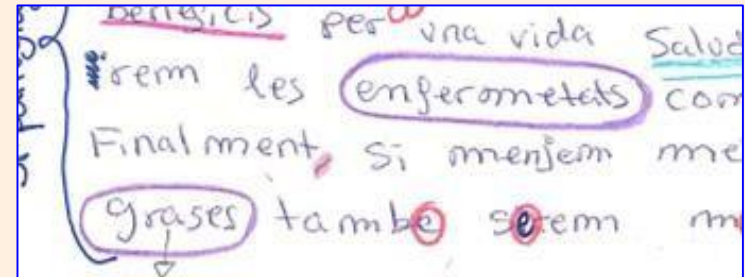 beneficis per una vida Salud
rem les enferometats com
Finalment, si menjem me
grases també serem m